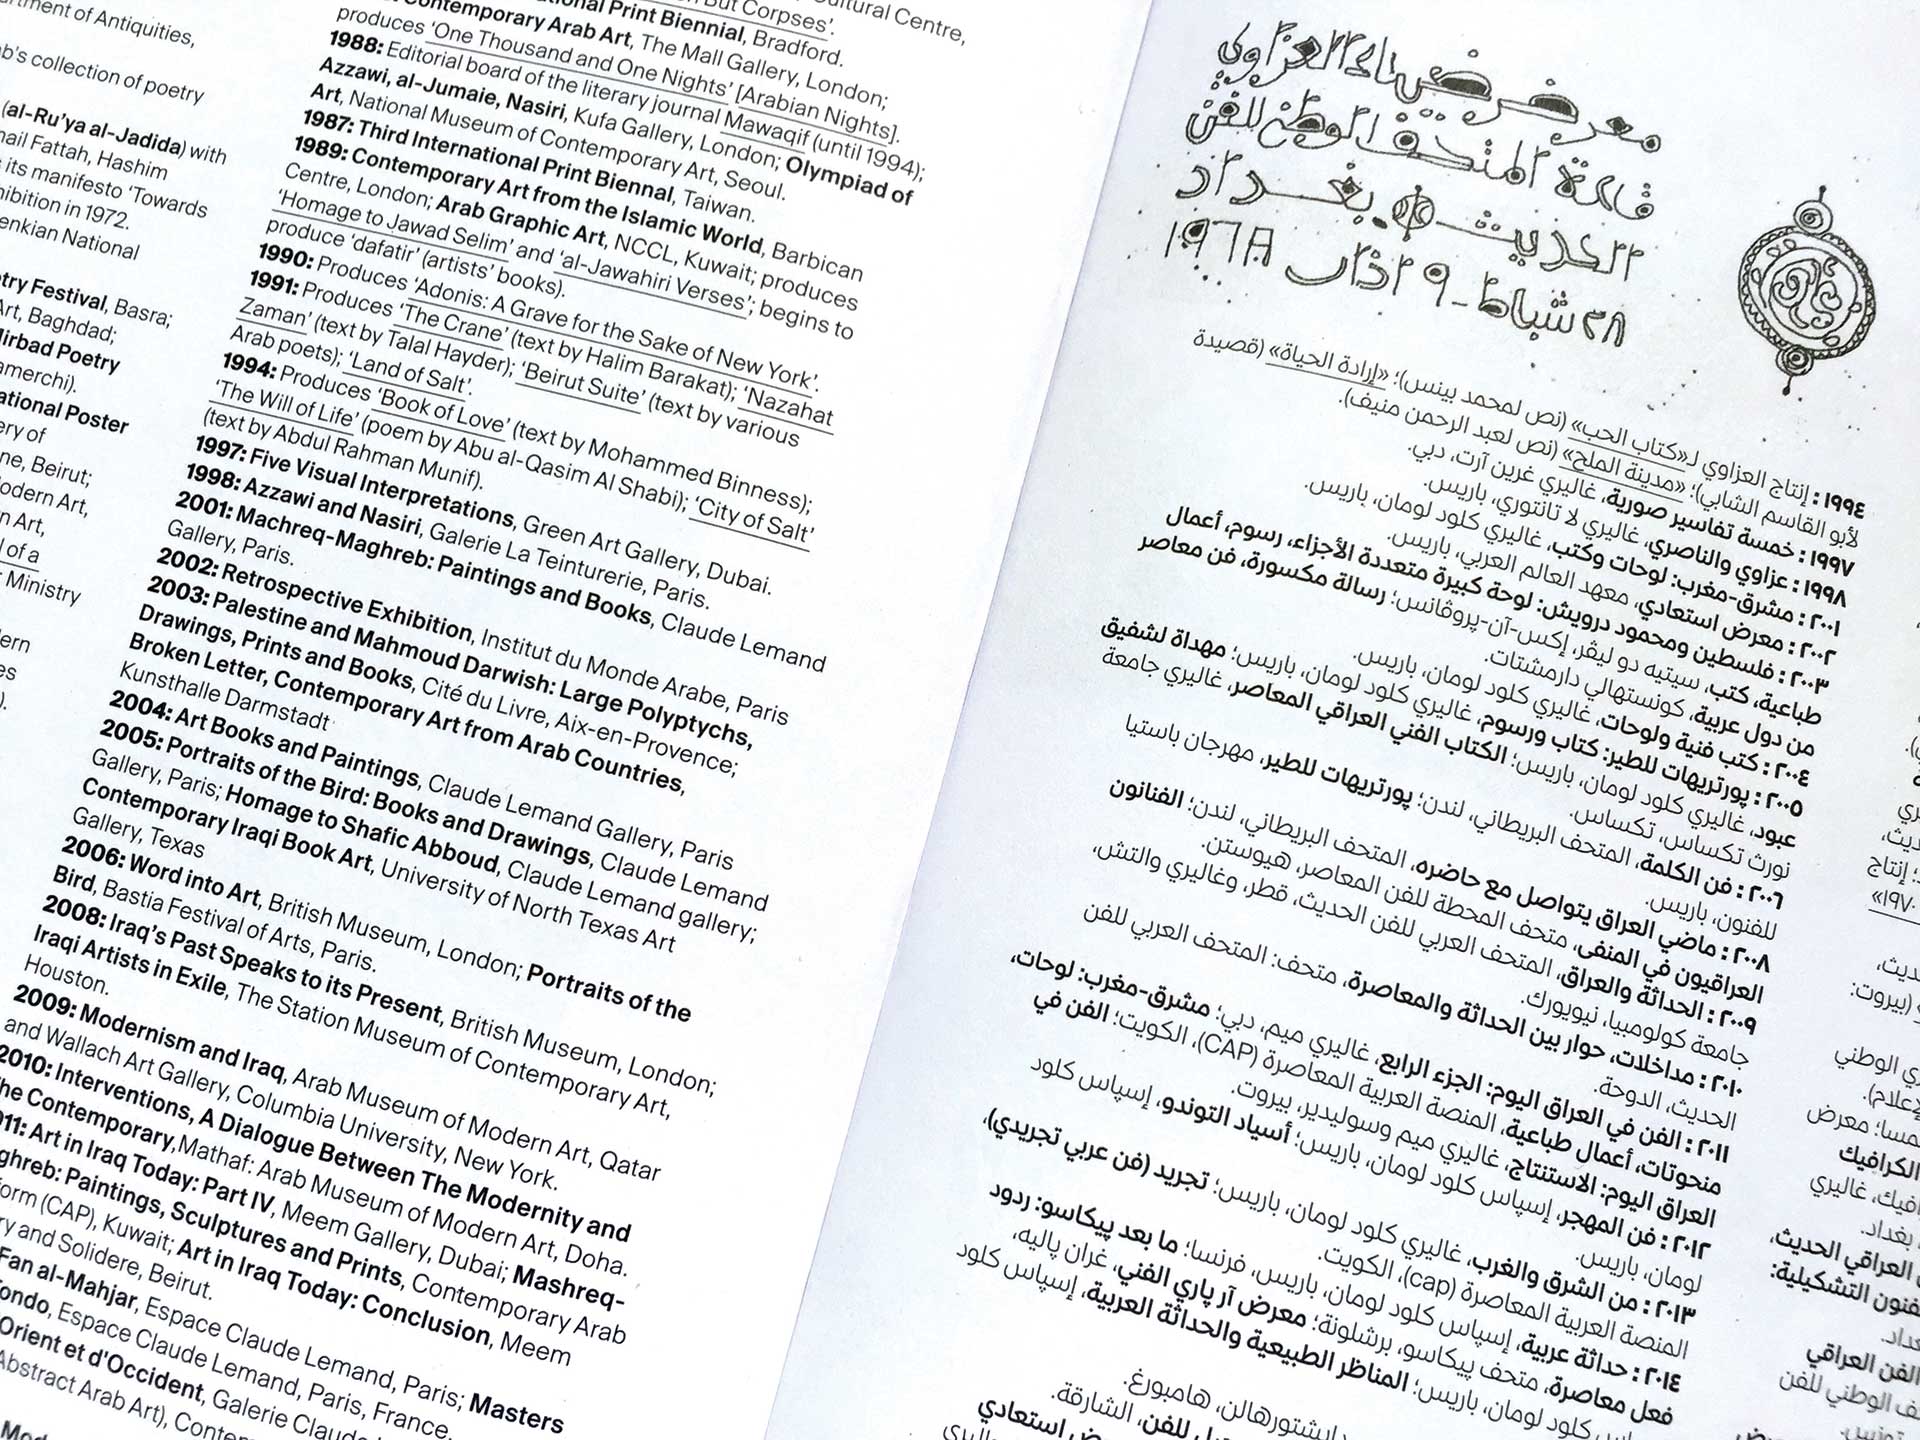 rtment of Antiquities,
ab's collection of poetry
(al-Ru'ya al-Jadida) with
mail Fattah, Hashim
its manifesto 'Towards
hibition in 1972.
enkian National
etry Festival, Basra;
Art, Baghdad;
Mirbad Poetry
amerchi).
ational Poster
ery of
ne, Beirut;
Modern Art,
n Art,
l of a
; Ministry
Cultural Centre,
But Corpses'.
Print Biennial, Bradford.
Contemporary Arab Art, The Mall Gallery, London;
produces 'One Thousand and One Nights' [Arabian Nights].
1988: Editorial board of the literary journal Mawaqif (until 1994);
Azzawi, al-Jumaie, Nasiri, Kufa Gallery, London; Olympiad of
Art, National Museum of Contemporary Art, Seoul.
1987: Third International Print Biennal, Taiwan.
1989: Contemporary Art from the Islamic World, Barbican
Centre, London; Arab Graphic Art, NCCL, Kuwait; produces
'Homage to Jawad Selim' and 'al-Jawahiri Verses'; begins to
produce 'dafatir' (artists' books).
1990: Produces 'Adonis: A Grave for the Sake of New York'.
1991: Produces 'The Crane' (text by Halim Barakat); 'Nazahat
Zaman' (text by Talal Hayder); 'Beirut Suite' (text by various
Arab poets); 'Land of Salt'.
1994: Produces 'Book of Love' (text by Mohammed Binness);
'The Will of Life' (poem by Abu al-Qasim Al Shabi); 'City of Salt'
(text by Abdul Rahman Munif).
1997: Five Visual Interpretations, Green Art Gallery, Dubai.
1998: Azzawi and Nasiri, Galerie La Teinturerie, Paris.
2001: Machreq-Maghreb: Paintings and Books, Claude Lemand
Gallery, Paris.
2002: Retrospective Exhibition, Institut du Monde Arabe, Paris
2003: Palestine and Mahmoud Darwish: Large Polyptychs,
Drawings, Prints and Books, Cité du Livre, Aix-en-Provence;
Broken Letter, Contemporary Art from Arab Countries,
Kunsthalle Darmstadt
2004: Art Books and Paintings, Claude Lemand Gallery, Paris
2005: Portraits of the Bird: Books and Drawings, Claude Lemand
Gallery, Paris; Homage to Shafic Abboud, Claude Lemand gallery;
Contemporary Iraqi Book Art, University of North Texas Art
Gallery, Texas
2006: Word into Art, British Museum, London; Portraits of the
Bird, Bastia Festival of Arts, Paris.
2008: Iraq's Past Speaks to its Present, British Museum, London;
Iraqi Artists in Exile, The Station Museum of Contemporary Art,
Houston.
2009: Modernism and Iraq, Arab Museum of Modern Art, Qatar
and Wallach Art Gallery, Columbia University, New York.
2010: Interventions, A Dialogue Between The Modernity and
The Contemporary,Mathaf: Arab Museum of Modern Art, Doha.
011: Art in Iraq Today: Part IV, Meem Gallery, Dubai; Mashreq-
ghreb: Paintings, Sculptures and Prints, Contemporary Arab
form (CAP), Kuwait; Art in Iraq Today: Conclusion, Meem
ry and Solidere, Beirut.
Fan al-Mahjar, Espace Claude Lemand, Paris; Masters
ondo, Espace Claude Lemand, Paris, France.
Orient et d'Occident, Galerie Claude
Abstract Arab Art), Contem
معرض ضياء العزاوي
قاعة المتحف الوطني للفن
الحديث بغداد
٢٨ شباط - ٩ اذار ١٩٦٨
١٩٩٤: إنتاج العزاوي لـ«كتاب الحب» (نص لمحمد بينس)؛ «إرادة الحياة» (قصيدة
لأبو القاسم الشابي)؛ «مدينة الملح» (نص لعبد الرحمن منيف).
١٩٩٧: خمسة تفاسير صورية، غاليري غرين آرت، دبي.
١٩٩٨: عزاوي والناصري، غاليري لا تانتوري، باريس.
٢٠٠١: مشرق-مغرب: لوحات وكتب، غاليري كلود لومان، باريس.
٢٠٠٢: معرض استعادي، معهد العالم العربي، باريس.
٢٠٠٣: فلسطين ومحمود درويش: لوحة كبيرة متعددة الأجزاء، رسوم، أعمال
طباعية، كتب، سيتيه دو ليڤر، إكس-آن-پروڤانس؛ رسالة مكسورة، فن معاصر
من دول عربية، كونستهالي دارمشتات.
٢٠٠٤: كتب فنية ولوحات، غاليري كلود لومان، باريس.
٢٠٠٥: پورتريهات للطير: كتاب ورسوم، غاليري كلود لومان، باريس؛ مهداة لشفيق
عبود، غاليري كلود لومان، باريس؛ الكتاب الفني العراقي المعاصر، غاليري جامعة
نورث تكساس، تكساس.
٢٠٠٦: فن الكلمة، المتحف البريطاني، لندن؛ پورتريهات للطير، مهرجان باستيا
للفنون، باريس.
٢٠٠٨: ماضي العراق يتواصل مع حاضره، المتحف البريطاني، لندن؛ الفنانون
العراقيون في المنفى، متحف المحطة للفن المعاصر، هيوستن.
٢٠٠٩: الحداثة والعراق، المتحف العربي للفن الحديث، قطر، وغاليري والتش،
جامعة كولومبيا، نيويورك.
٢٠١٠: مداخلات، حوار بين الحداثة والمعاصرة، متحف: المتحف العربي للفن
الحديث، الدوحة.
٢٠١١: الفن في العراق اليوم: الجزء الرابع، غاليري ميم، دبي؛ مشرق-مغرب: لوحات،
منحوتات، أعمال طباعية، المنصة العربية المعاصرة (CAP)، الكويت؛ الفن في
العراق اليوم: الاستنتاج، غاليري ميم وسوليدير، بيروت.
٢٠١٢: فن المهجر، إسپاس كلود لومان، باريس؛ أسياد التوندو، إسپاس كلود
لومان، باريس.
٢٠١٣: من الشرق والغرب، غاليري كلود لومان، باريس؛ تجريد (فن عربي تجريدي)،
المنصة العربية المعاصرة (cap)، الكويت.
٢٠١٤: حداثة عربية، إسپاس كلود لومان، باريس، فرنسا؛ ما بعد پيكاسو: ردود
فعل معاصرة، متحف پيكاسو، برشلونة؛ معرض آر پاري الفني، غران پاليه،
كلود لومان، باريس؛ المناظر الطبيعية والحداثة العربية، إسپاس كلود
دايشتورهالن، هامبورغ.
للفن، الشارقة.
استعادي
إنتاج
١٩٧٠»
(بيروت:
الوطني
معرض
الكرافيك
غاليري
بغداد.
العراقي الحديث،
الفنون التشكيلية:
الفن العراقي
الوطني للفن